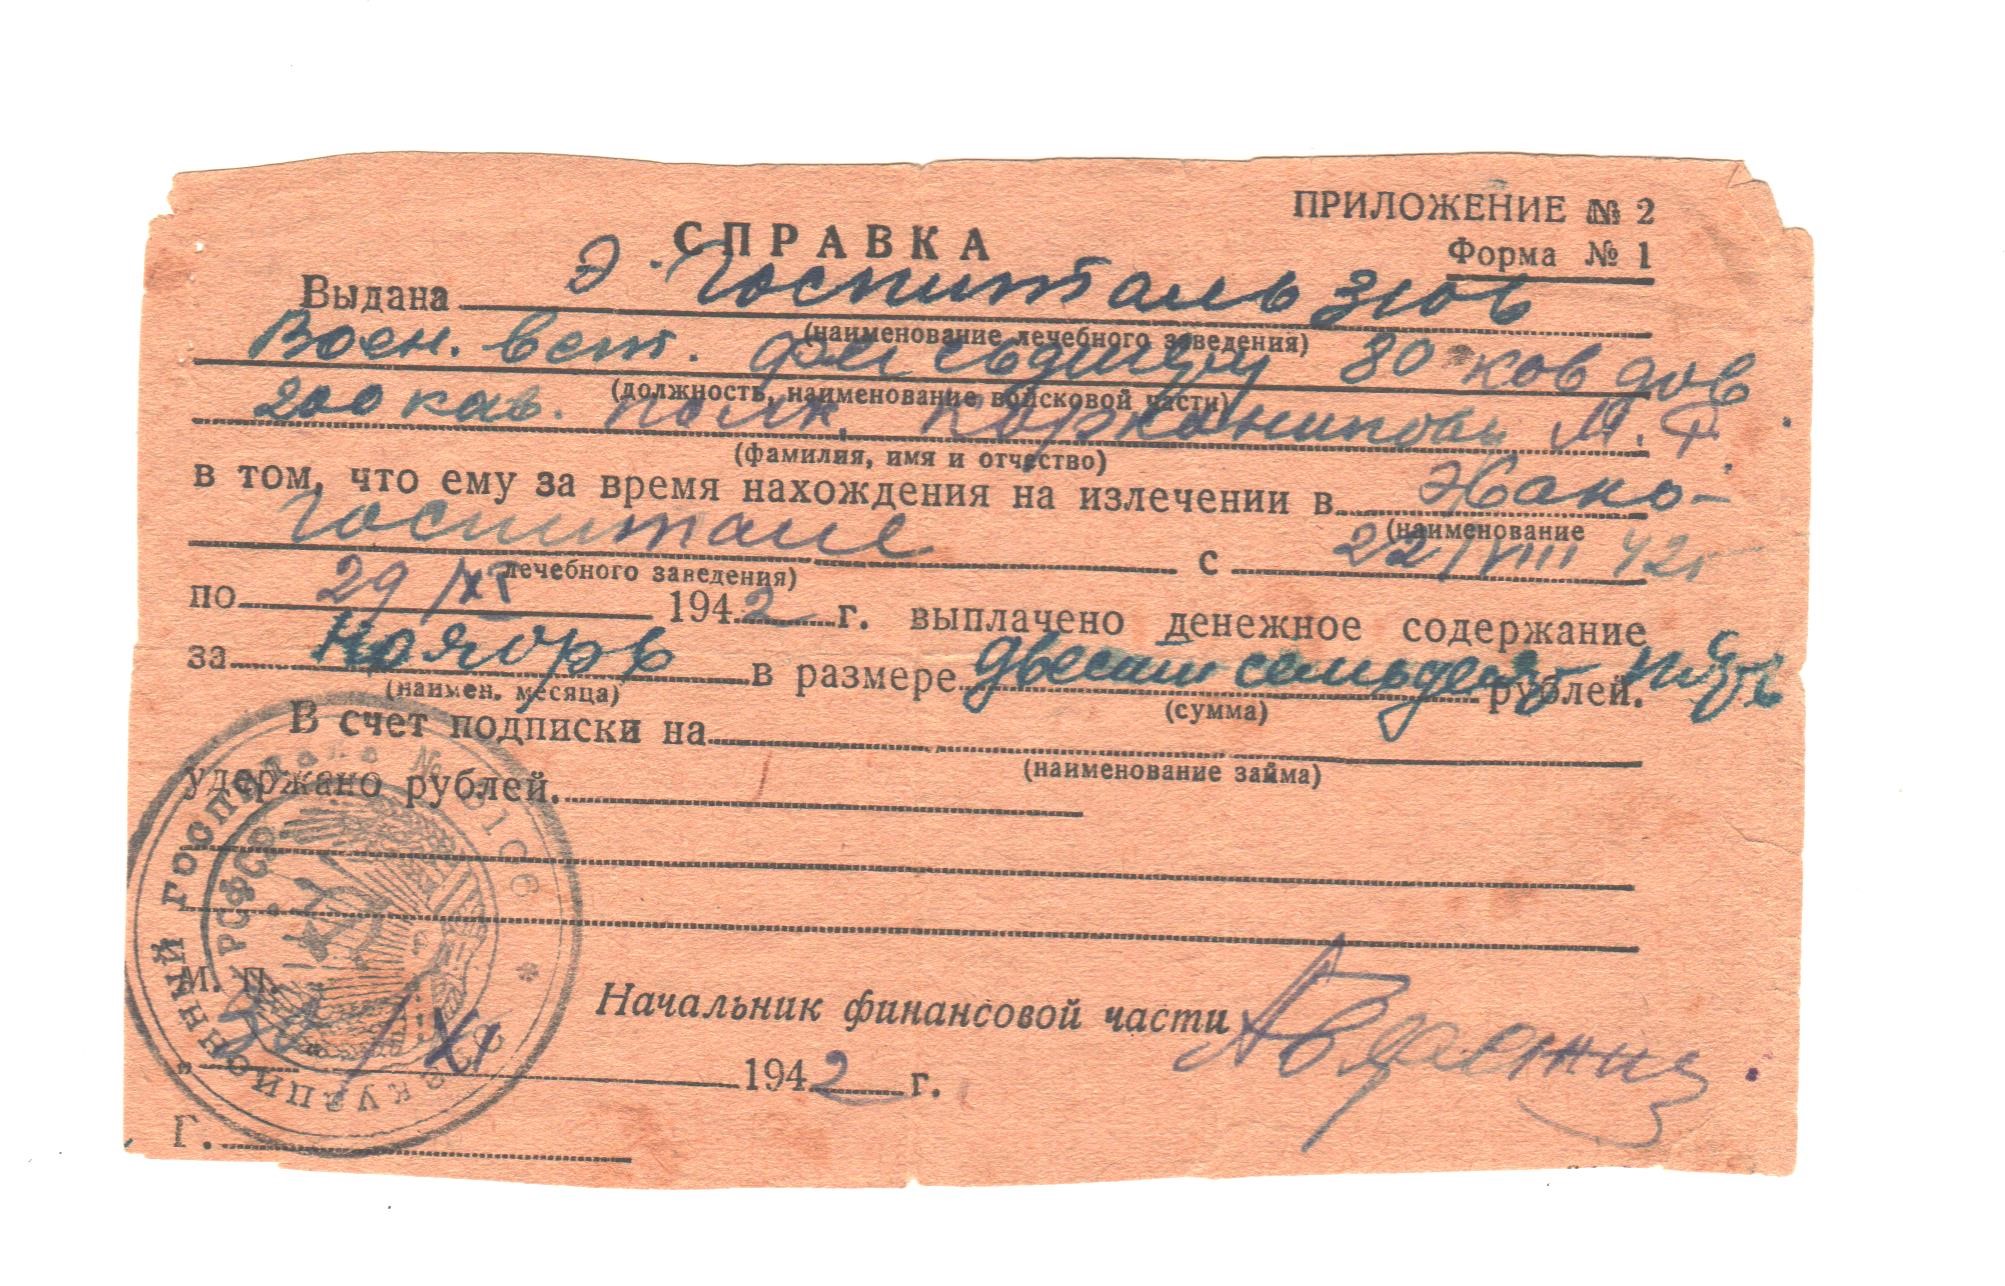 ПРИЛОЖЕНИЕ № 2
СПРАВКА
Форма № 1
Выдана Э. Госпиталь 3106
(наименование лечебного заведения)
Воен. вет. 80 кав див
(должность, наименование войсковой части)
200 кав. полк. М. Ф.
(фамилия, имя и отчество)
в том, что ему за время нахождения на излечении в Эвако-
(наименование
госпитале с 22/VIII 42г
лечебного заведения)
по 29/XI 1942 г. выплачено денежное содержание
за ноябрь в размере двести семьдесят пять рублей.
(наимен. месяца)
(сумма)
В счет подписки на
(наименование займа)
удержано рублей.
ЭВАКУАЦИОННЫЙ ГОСПИТАЛЬ № 3106 *
РСФСР
М. П.
Начальник финансовой части
„ 30/XI 1942 г.
Г.